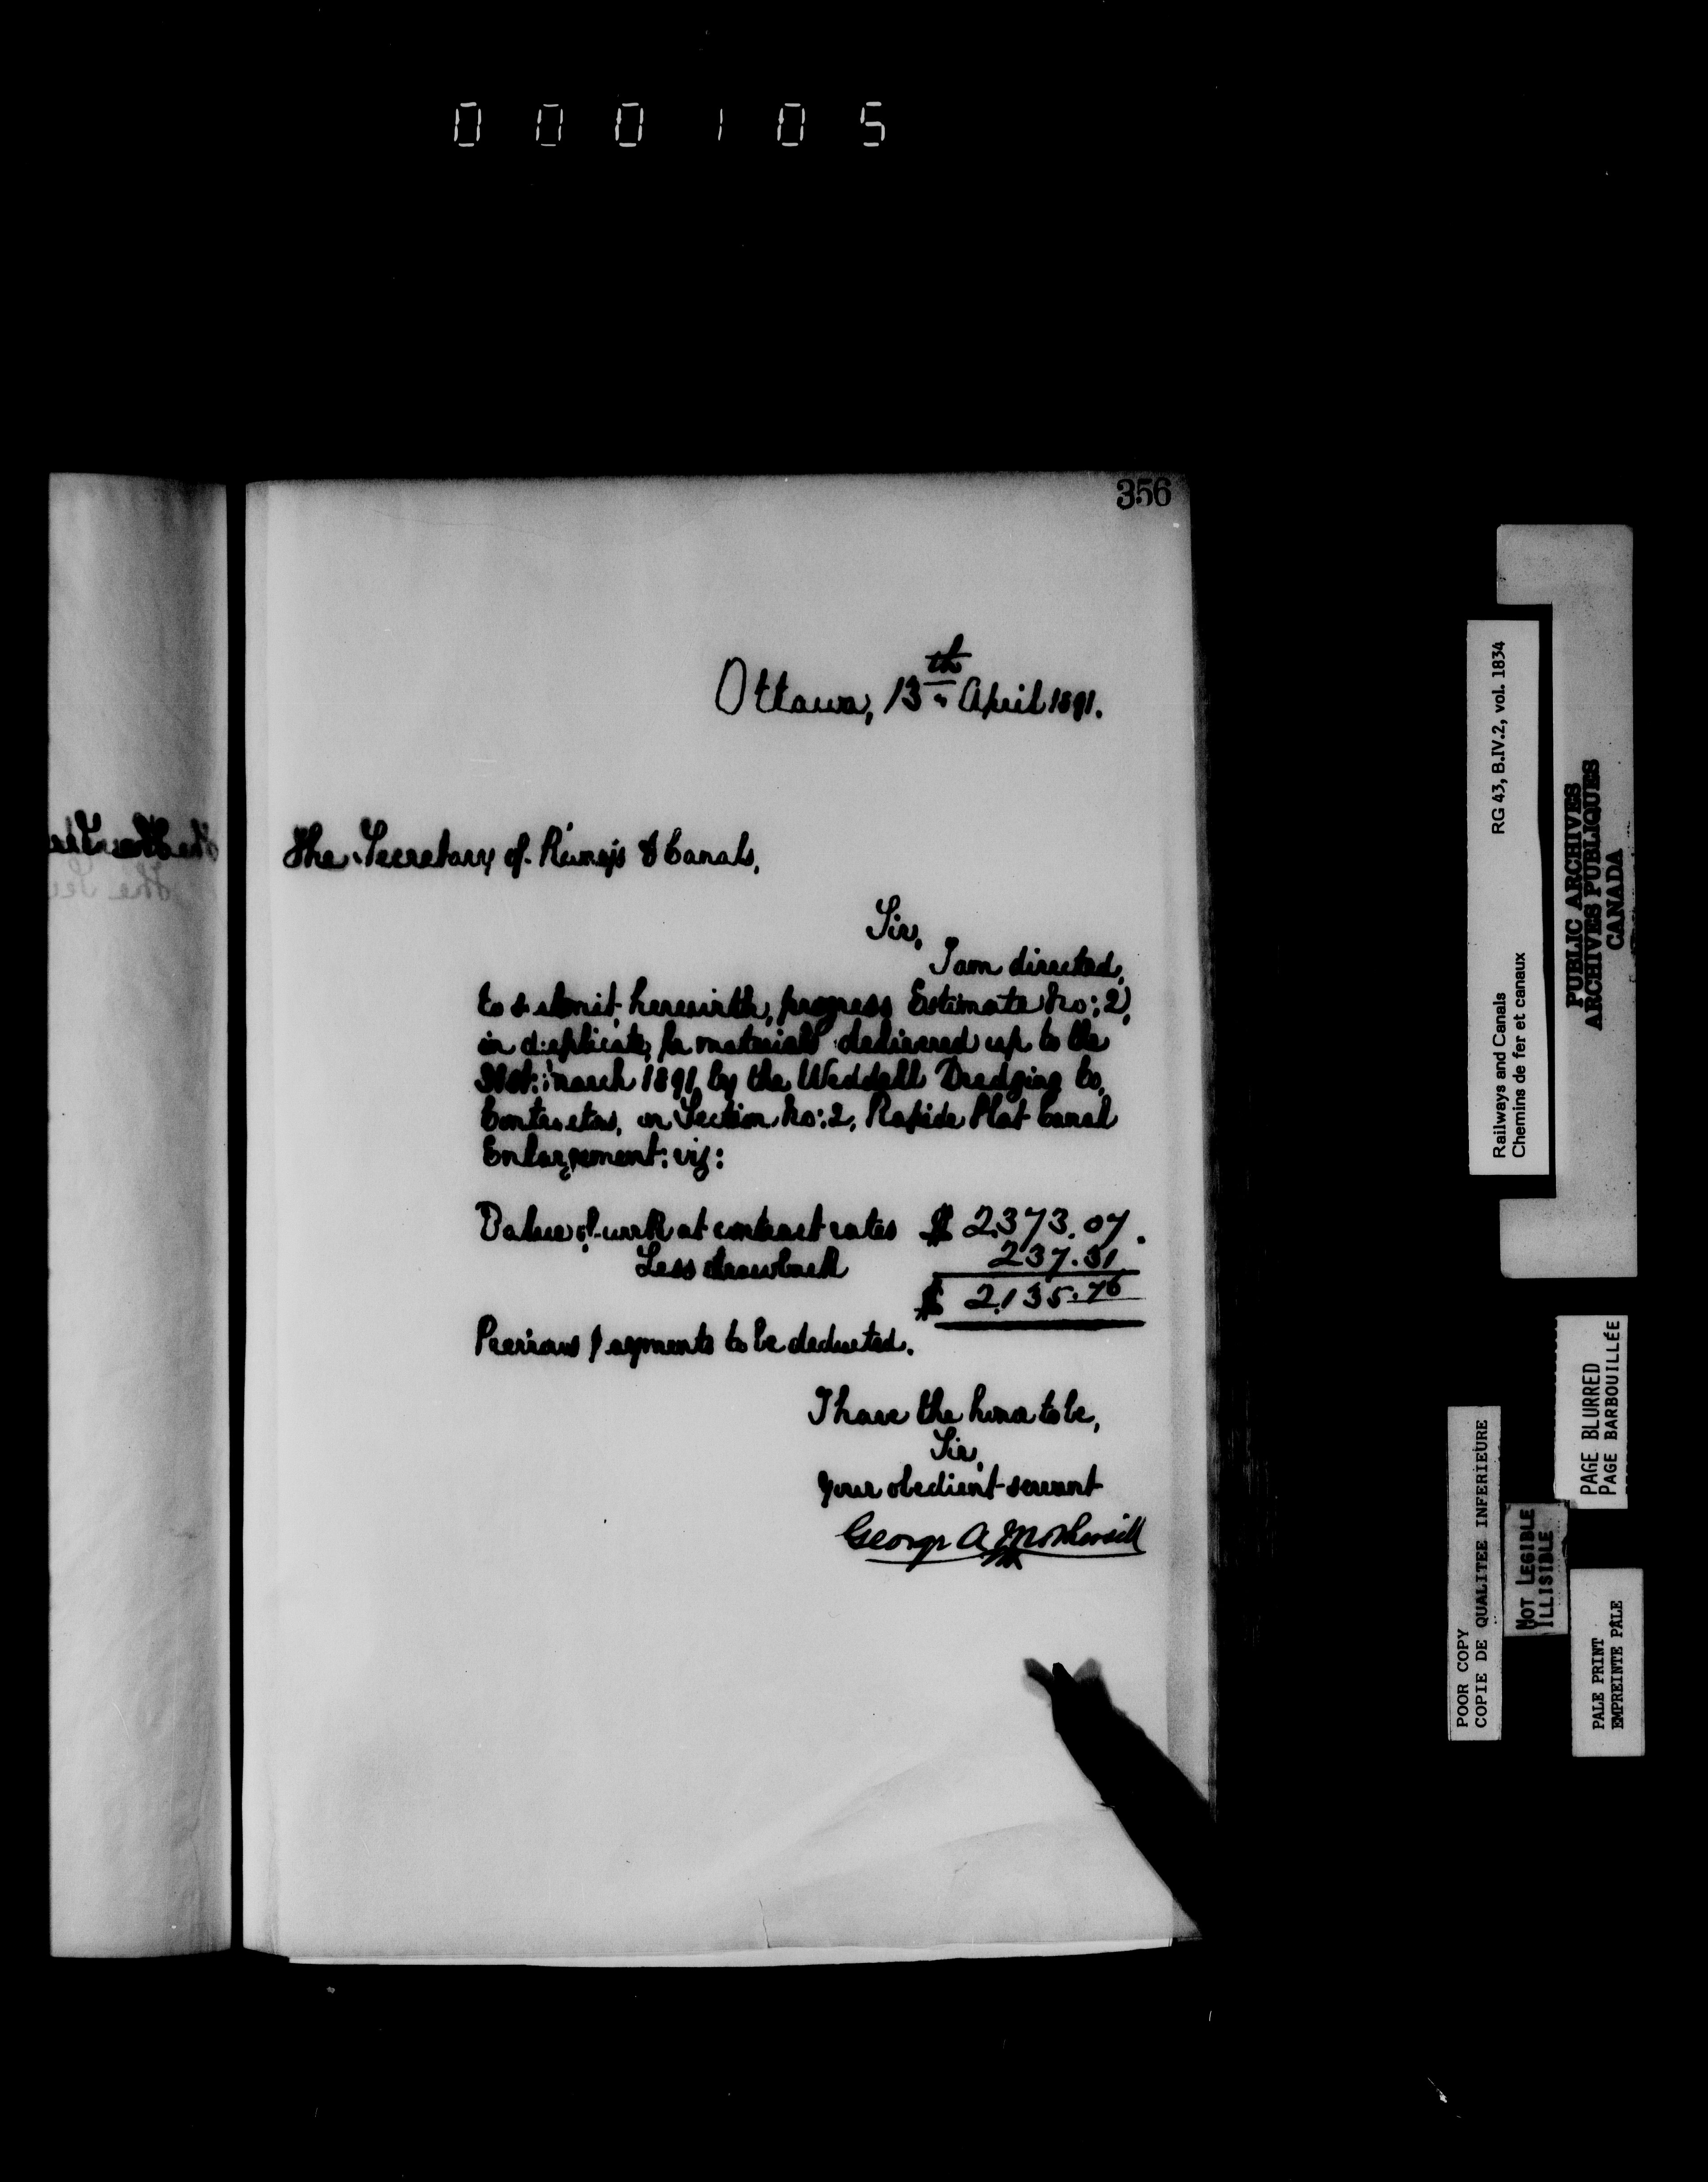 000105
356
Ottawa, 13th April 1891.
The Secretary of Rways & Canals,
Sir,
I am directed,
to submit, herewith, progress Estimate No: 2,
in duplicate, for materials delivered up to the
31st: March 1891, by the Weddell Dredging Co,
Contractors, on Section No: 2, Rapide Plat Canal
Enlargement: viz:
Value of work at contract rates $ 2,373.07.
Less drawback 237.31
$ 2,135.76
Previous payments to be deducted.
I have the honor to be,
Sir,
your obedient servant
George A
Railways and Canals RG 43, B.IV.2, vol. 1834
Chemins de fer et canaux
PUBLIC ARCHIVES
ARCHIVES PUBLIQUES
CANADA
PAGE BLURRED
PAGE BARBOUILLÉE
POOR COPY
COPIE DE QUALITEE INFERIEURE
NOT LEGIBLE
ILLISIBLE
PALE PRINT
EMPREINTE PÂLE